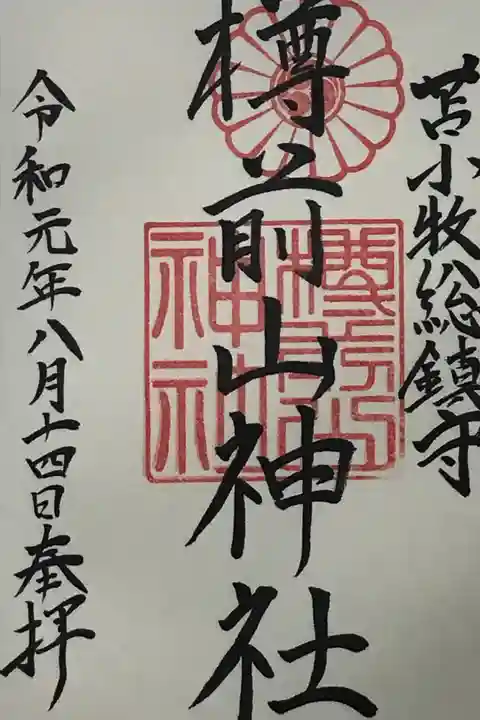 苫小牧総鎮守
樽前山神社
令和元年八月十四日奉拝
樽前山
神社